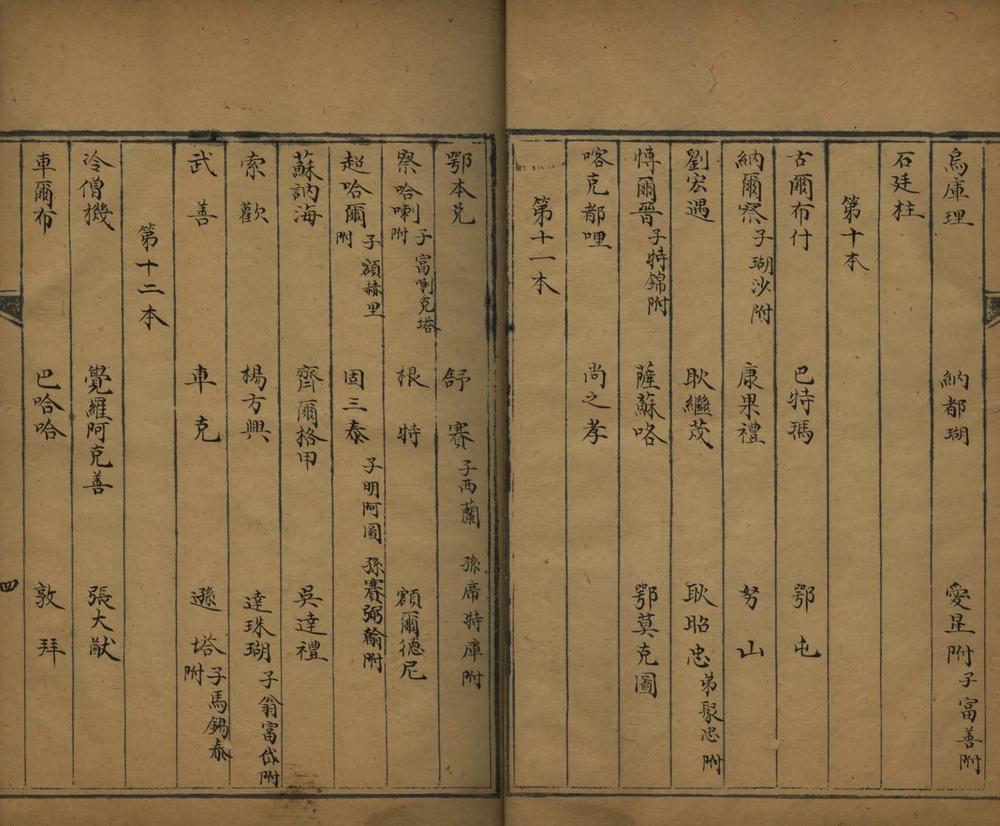 烏庫理 納都瑚 愛星附子富善附
石廷柱
第十本
古爾布什 巴特瑪 鄂屯
納爾察子瑚沙附 康果禮 努山
劉宏遇 耿繼茂 耿昭忠弟聚忠附
博爾晉子特錦附 薩蘇喀 鄂莫克圖
喀克都哩 尚之孝
第十一本
鄂本兌 舒賽子西蘭 孫席特庫附
察哈喇子富喇克塔附 根特 額爾德尼
超哈爾子額赫里附 固三泰子明阿圖 孫賽弼翰附
蘇訥海 齊爾格申 吳達禮
索歡 楊方興 達珠瑚子翁富岱附
武善 車克 遜塔子馬錫泰附
第十二本
冷僧機 覺羅阿克善 張大猷
車爾布 巴哈哈 敦拜
四